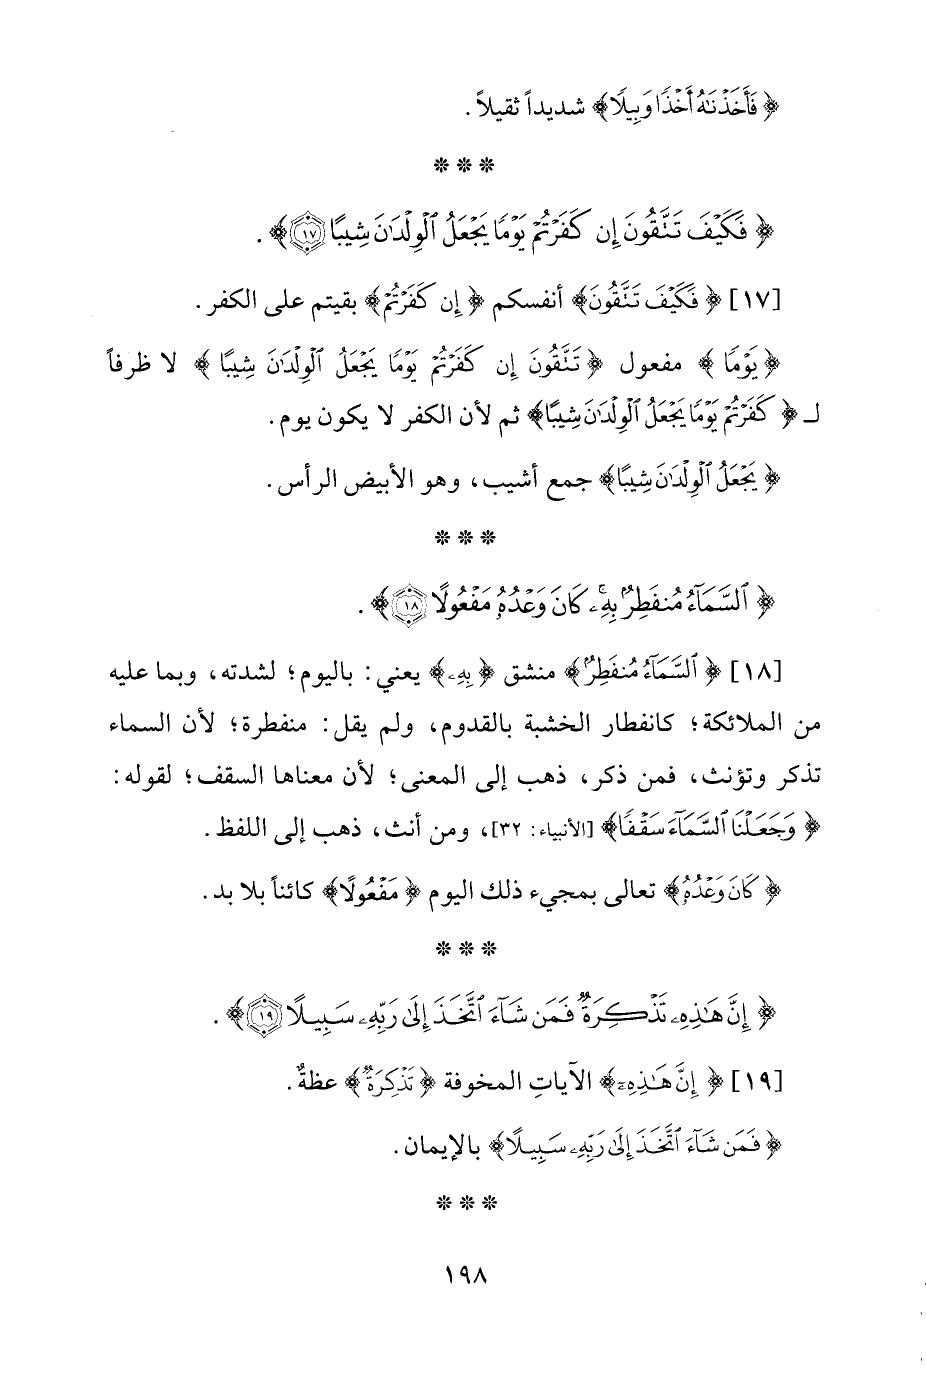 ﴿فَأَخَذْنَٰهُ أَخْذًا وَبِيلًا﴾ شديداً ثقيلاً.
* * *
﴿فَكَيْفَ تَتَّقُونَ إِن كَفَرْتُمْ يَوْمًا يَجْعَلُ ٱلْوِلْدَٰنَ شِيبًا ۝١٧﴾.
[١٧] ﴿فَكَيْفَ تَتَّقُونَ﴾ أنفسكم ﴿إِن كَفَرْتُمْ﴾ بقيتم على الكفر.
﴿يَوْمًا﴾ مفعول ﴿تَتَّقُونَ إِن كَفَرْتُمْ يَوْمًا يَجْعَلُ ٱلْوِلْدَٰنَ شِيبًا﴾ لا ظرفاً
لـ ﴿كَفَرْتُمْ يَوْمًا يَجْعَلُ ٱلْوِلْدَٰنَ شِيبًا﴾ ثم لأن الكفر لا يكون يوم.
﴿يَجْعَلُ ٱلْوِلْدَٰنَ شِيبًا﴾ جمع أشيب، وهو الأبيض الرأس.
* * *
﴿ٱلسَّمَآءُ مُنفَطِرٌۢ بِهِۦۚ كَانَ وَعْدُهُۥ مَفْعُولًا ۝١٨﴾.
[١٨] ﴿ٱلسَّمَآءُ مُنفَطِرٌۢ﴾ منشق ﴿بِهِۦ﴾ يعني: باليوم؛ لشدته، وبما عليه
من الملائكة؛ كانفطار الخشبة بالقدوم، ولم يقل: منفطرة؛ لأن السماء
تذكر وتؤنث، فمن ذكر، ذهب إلى المعنى؛ لأن معناها السقف؛ لقوله:
﴿وَجَعَلْنَا ٱلسَّمَآءَ سَقْفًا﴾ [الأنبياء: ٣٢]، ومن أنث، ذهب إلى اللفظ.
﴿كَانَ وَعْدُهُۥ﴾ تعالى بمجيء ذلك اليوم ﴿مَفْعُولًا﴾ كائناً بلا بد.
* * *
﴿إِنَّ هَٰذِهِۦ تَذْكِرَةٌۖ فَمَن شَآءَ ٱتَّخَذَ إِلَىٰ رَبِّهِۦ سَبِيلًا ۝١٩﴾.
[١٩] ﴿إِنَّ هَٰذِهِۦ﴾ الآياتِ المخوفة ﴿تَذْكِرَةٌ﴾ عظةٌ.
﴿فَمَن شَآءَ ٱتَّخَذَ إِلَىٰ رَبِّهِۦ سَبِيلًا﴾ بالإيمان.
* * *
١٩٨